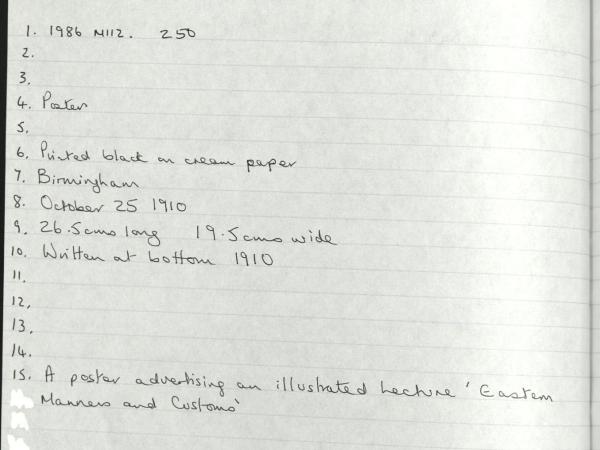 1. 1986 M112. 250
2.
3.
4. Poster
5.
6. Printed black on cream paper
7. Birmingham
8. October 25 1910
9. 26.5cms long 19.5cms wide
10. Written at bottom 1910
11.
12.
13.
14.
15. A poster advertising an illustrated Lecture 'Eastern
Manners and Customs'